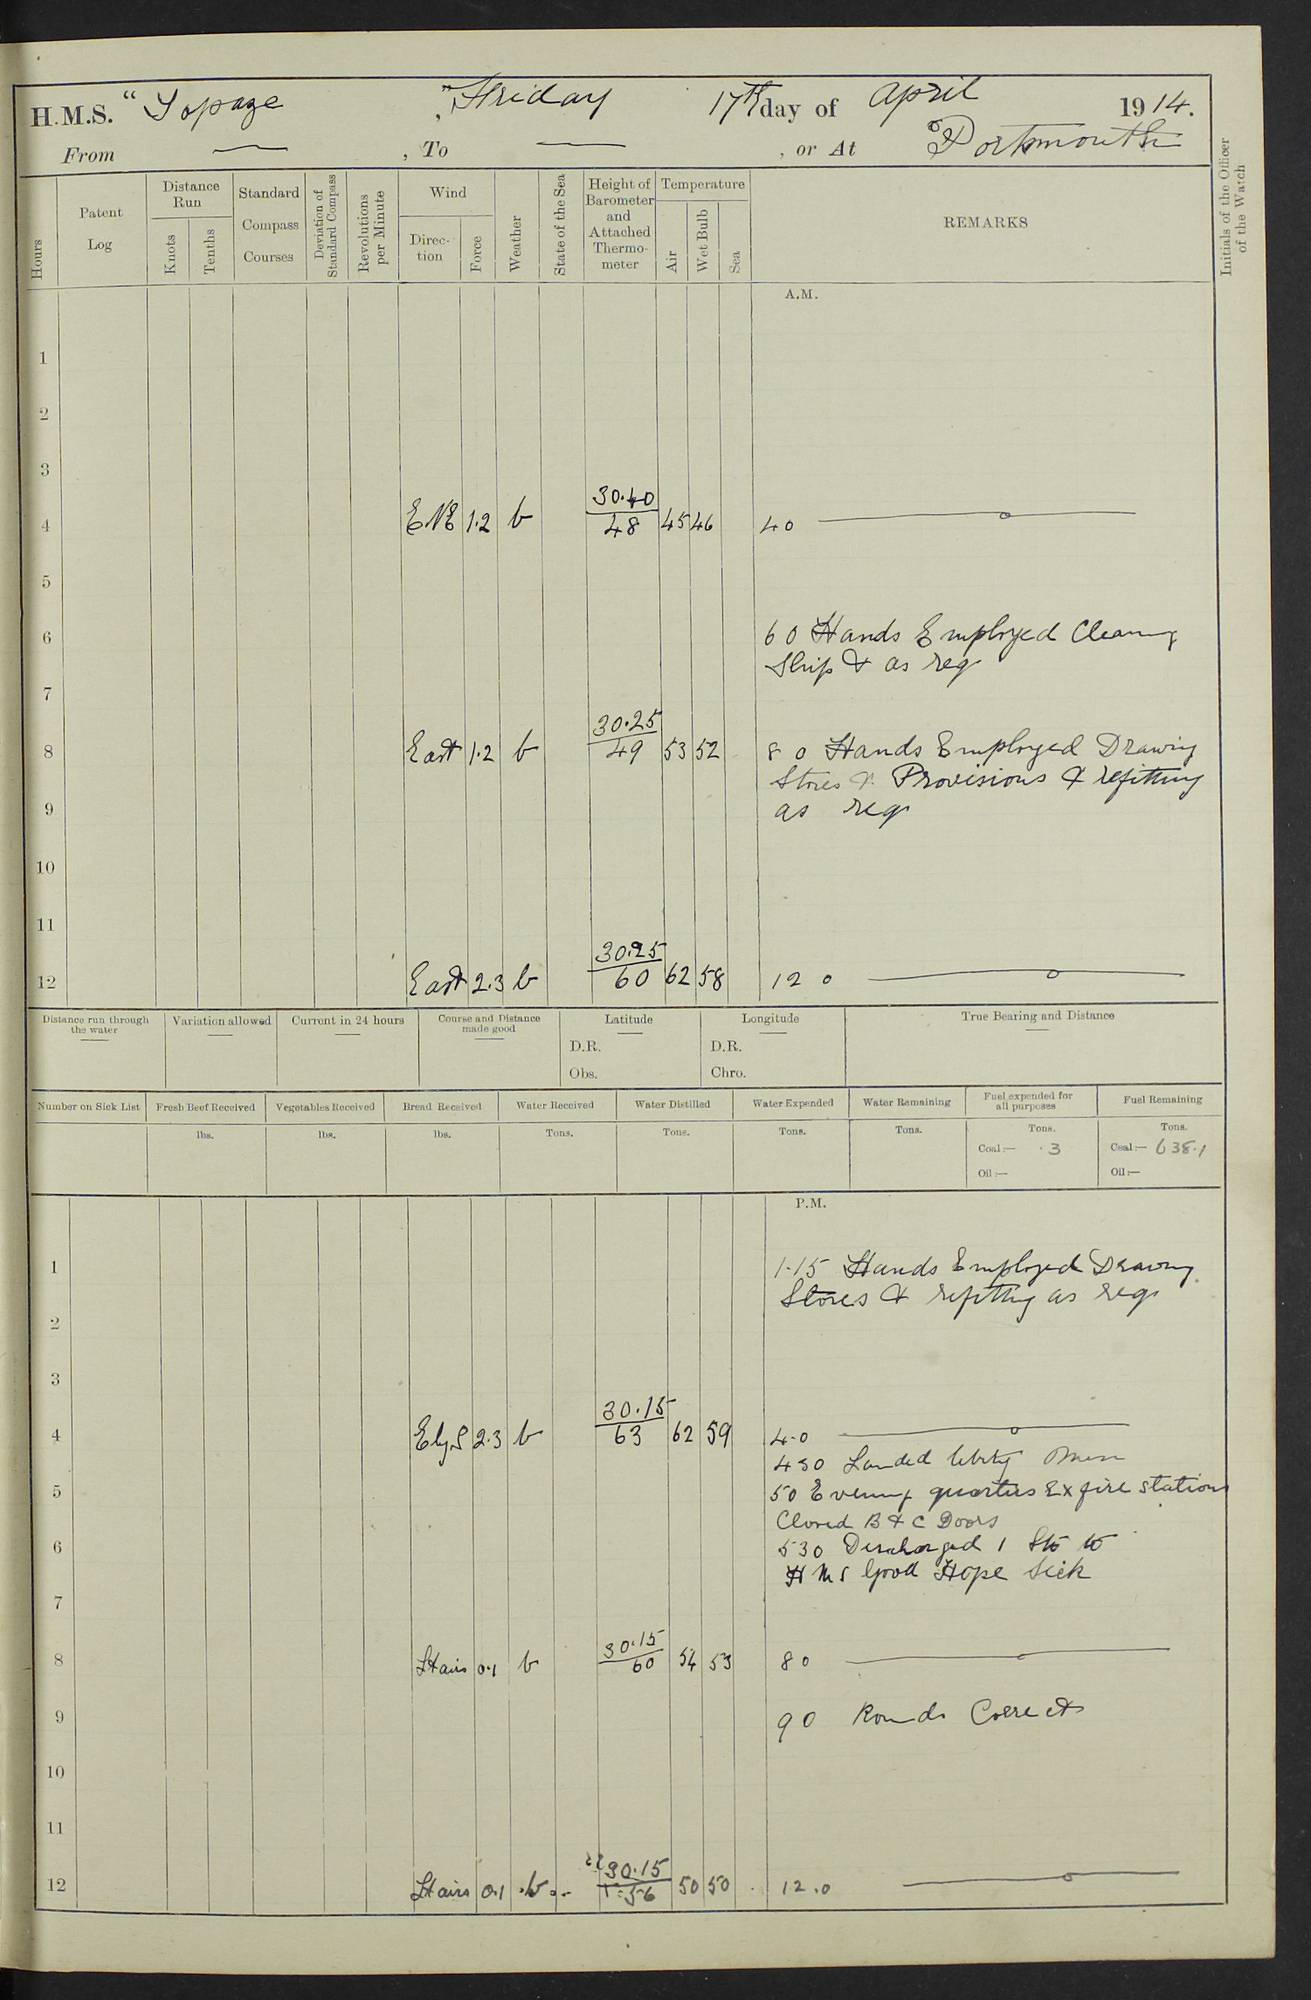 H.M.S. "Topaze", Friday 17th day of April 1914.
From — , To — , or At Portsmouth
Hours
Patent Log
Distance Run
Knots
Tenths
Standard Compass Courses
Deviation of Standard Compass
Revolutions per Minute
Wind
Direction
Force
Weather
State of the Sea
Height of Barometer and Attached Thermometer
Temperature
Air
Wet Bulb
Sea
REMARKS
Initials of the Officer of the Watch
A.M.
1
2
3
4 ENE 1.2 b 30.40 48 45 46 4 0
5
6 6 0 Hands Employed Cleaning
Ship & as req
7
8 East 1.2 b 30.25 49 53 52 8 0 Hands Employed Drawing
Stores & Provisions & refitting
9 as req
10
11
12 East 2.3 b 30.25 60 62 58 12 0
Distance run through the water
Variation allowed
Current in 24 hours
Course and Distance made good
Latitude
D.R.
Obs.
Longitude
D.R.
Chro.
True Bearing and Distance
Number on Sick List
Fresh Beef Received
lbs.
Vegetables Received
lbs.
Bread Received
lbs.
Water Received
Tons.
Water Distilled
Tons.
Water Expended
Tons.
Water Remaining
Tons.
Fuel expended for all purposes
Tons.
Coal:— .3
Oil:—
Fuel Remaining
Tons.
Coal:— 638.1
Oil:—
P.M.
1 1.15 Hands Employed Drawing
Stores & refitting as req
2
3
4 E by S 2.3 b 30.15 63 62 59 4.0
4 30 Landed liberty men
5 5 0 Evening quarters Ex fire stations
Closed B & C Doors
6 5 30 Discharged 1 Sto to
H M S Good Hope Sick
7
8 Stairs 0.1 b 30.15 60 54 53 8 0
9 9 0 Rounds Correct
10
11
12 Stairs 0.1 b 30.15 56 50 50 12.0